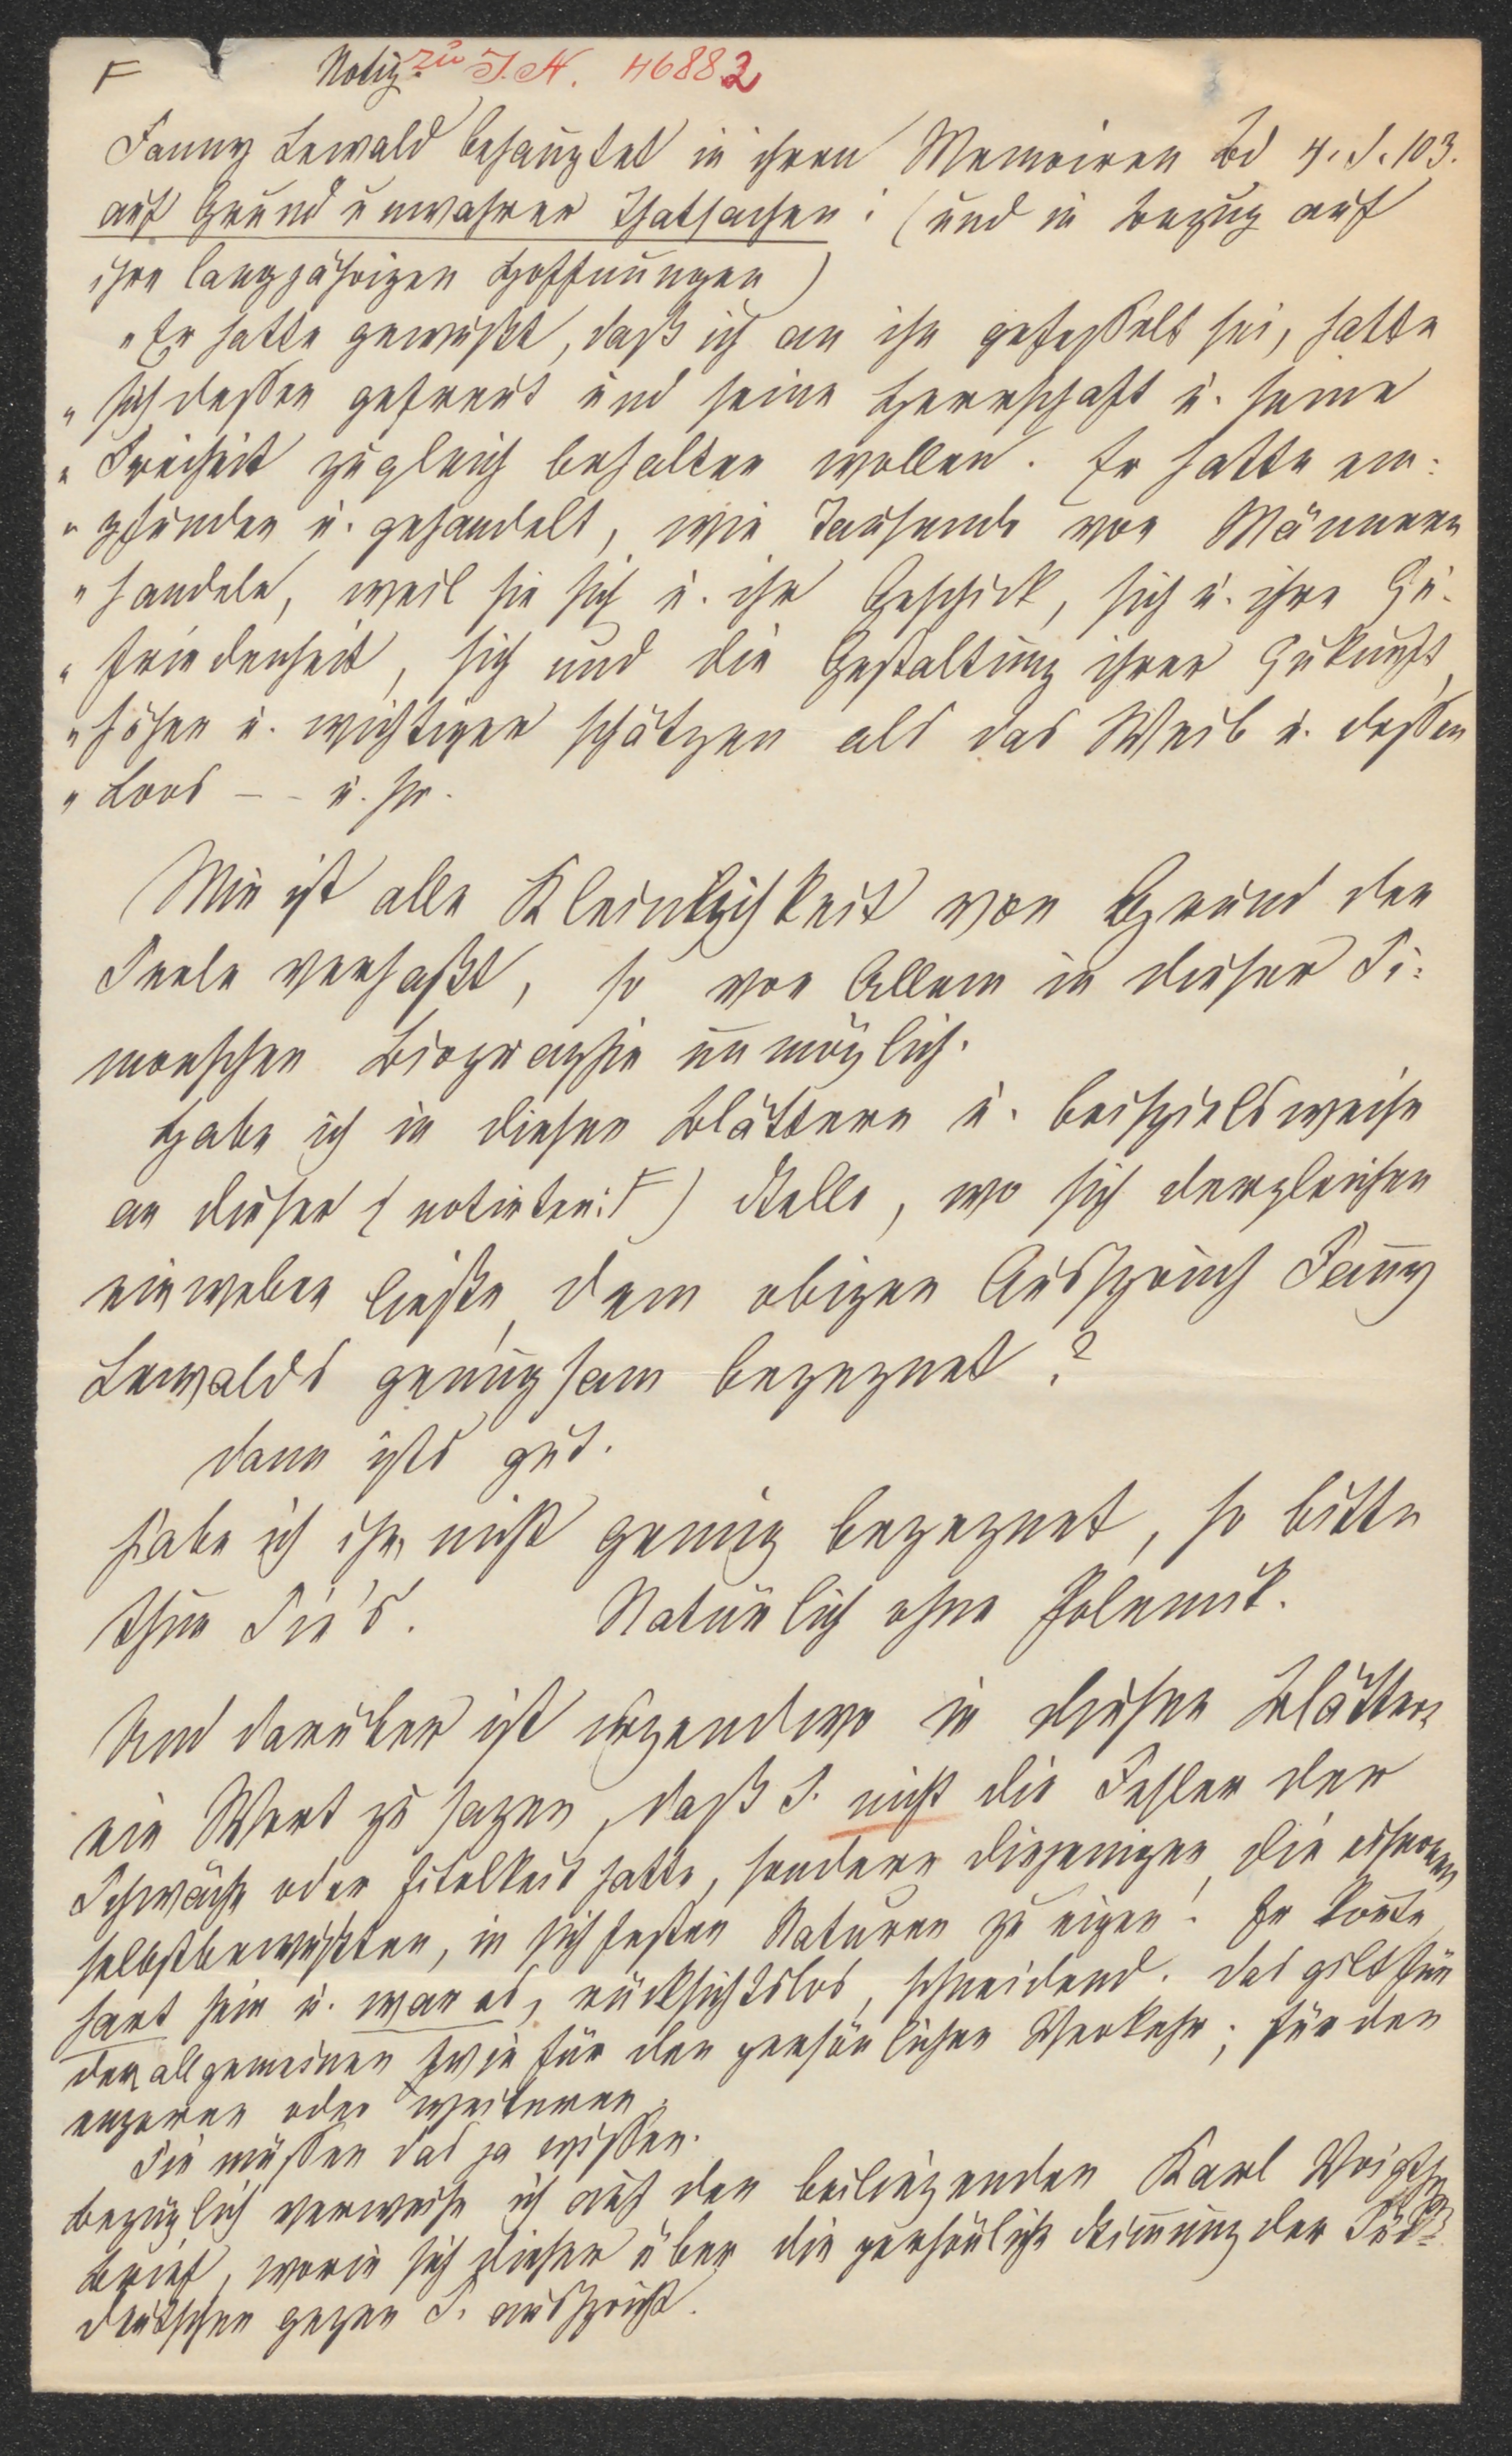 F Notiz. zu I.N. 46882
Fanny Lewald behauptet in ihren Memoiren Bd 4. S. 103.
auf Grund unwahrer Thatsachen: (und in Bezug auf
ihre langjährigen Hoffnungen)
"Er hatte gewußt, daß ich an ihn gefesselt sei, hatte
"sich dessen gefreut und seine Herrschaft u. seine
"Freiheit zugleich behalten wollen. Er hatte em:
"pfunden u. gehandelt, wie Tausende von Männern
"handeln, weil sie sich u. ihr Geschick, sich u. ihre Zu-
"friedenheit, sich und die Gestaltung ihrer Zukunft,
"höher u. wichtiger schätzen als das Weib u. dessen
"Loos – – u. sw.
Mir ist alle Kleinlichkeit von Grund der
Seele verhaßt, so vor Allem in dieser Si:
monschen Biographie unmöglich.
Habe ich in diesen Blättern u. beispielsweise
an dieser (notirten: F) Stelle, wo sich dergleichen
einweben ließe, dem obigen Ausspruch Fanny
Lewalds genugsam begegnet?
dann ists gut.
Habe ich ihm nicht genug begegnet, so bitte
thun Sie's. Natürlich ohne Polemik.
Und darüber ist irgendwo in diesen Blättern
ein Wort zu sagen, daß S. nicht die Fehler der
Schwäche oder Eitelkeit hatte, sondern diejenigen, die eisernen
selbstbewußten, in sich festen Naturen zu eigen! Er konnte
hart sein u. war es, rücksichtslos, schneidend. das gilt für
den allgemeinen wie für den persönlichen Verkehr; für den
engeren oder weiteren.
Sie müssen das ja wissen.
Bezüglich verweise ich auf den beiliegenden Karl Voigtschen
Brief, worin sich dieser über die persönliche Stimmung der Süd-
deutschen gegen S. ausspricht.